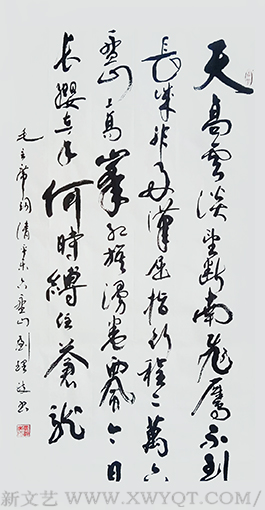 天高雲淡望斷南飛鴈不到
長城非好漢屈指行程二萬六
盤山上高峯紅旗漫卷西風今日
長纓在手何時縛住蒼龍
毛主席詞清平樂六盤山劉書
新文艺 - WWW.XWYQT.COM/